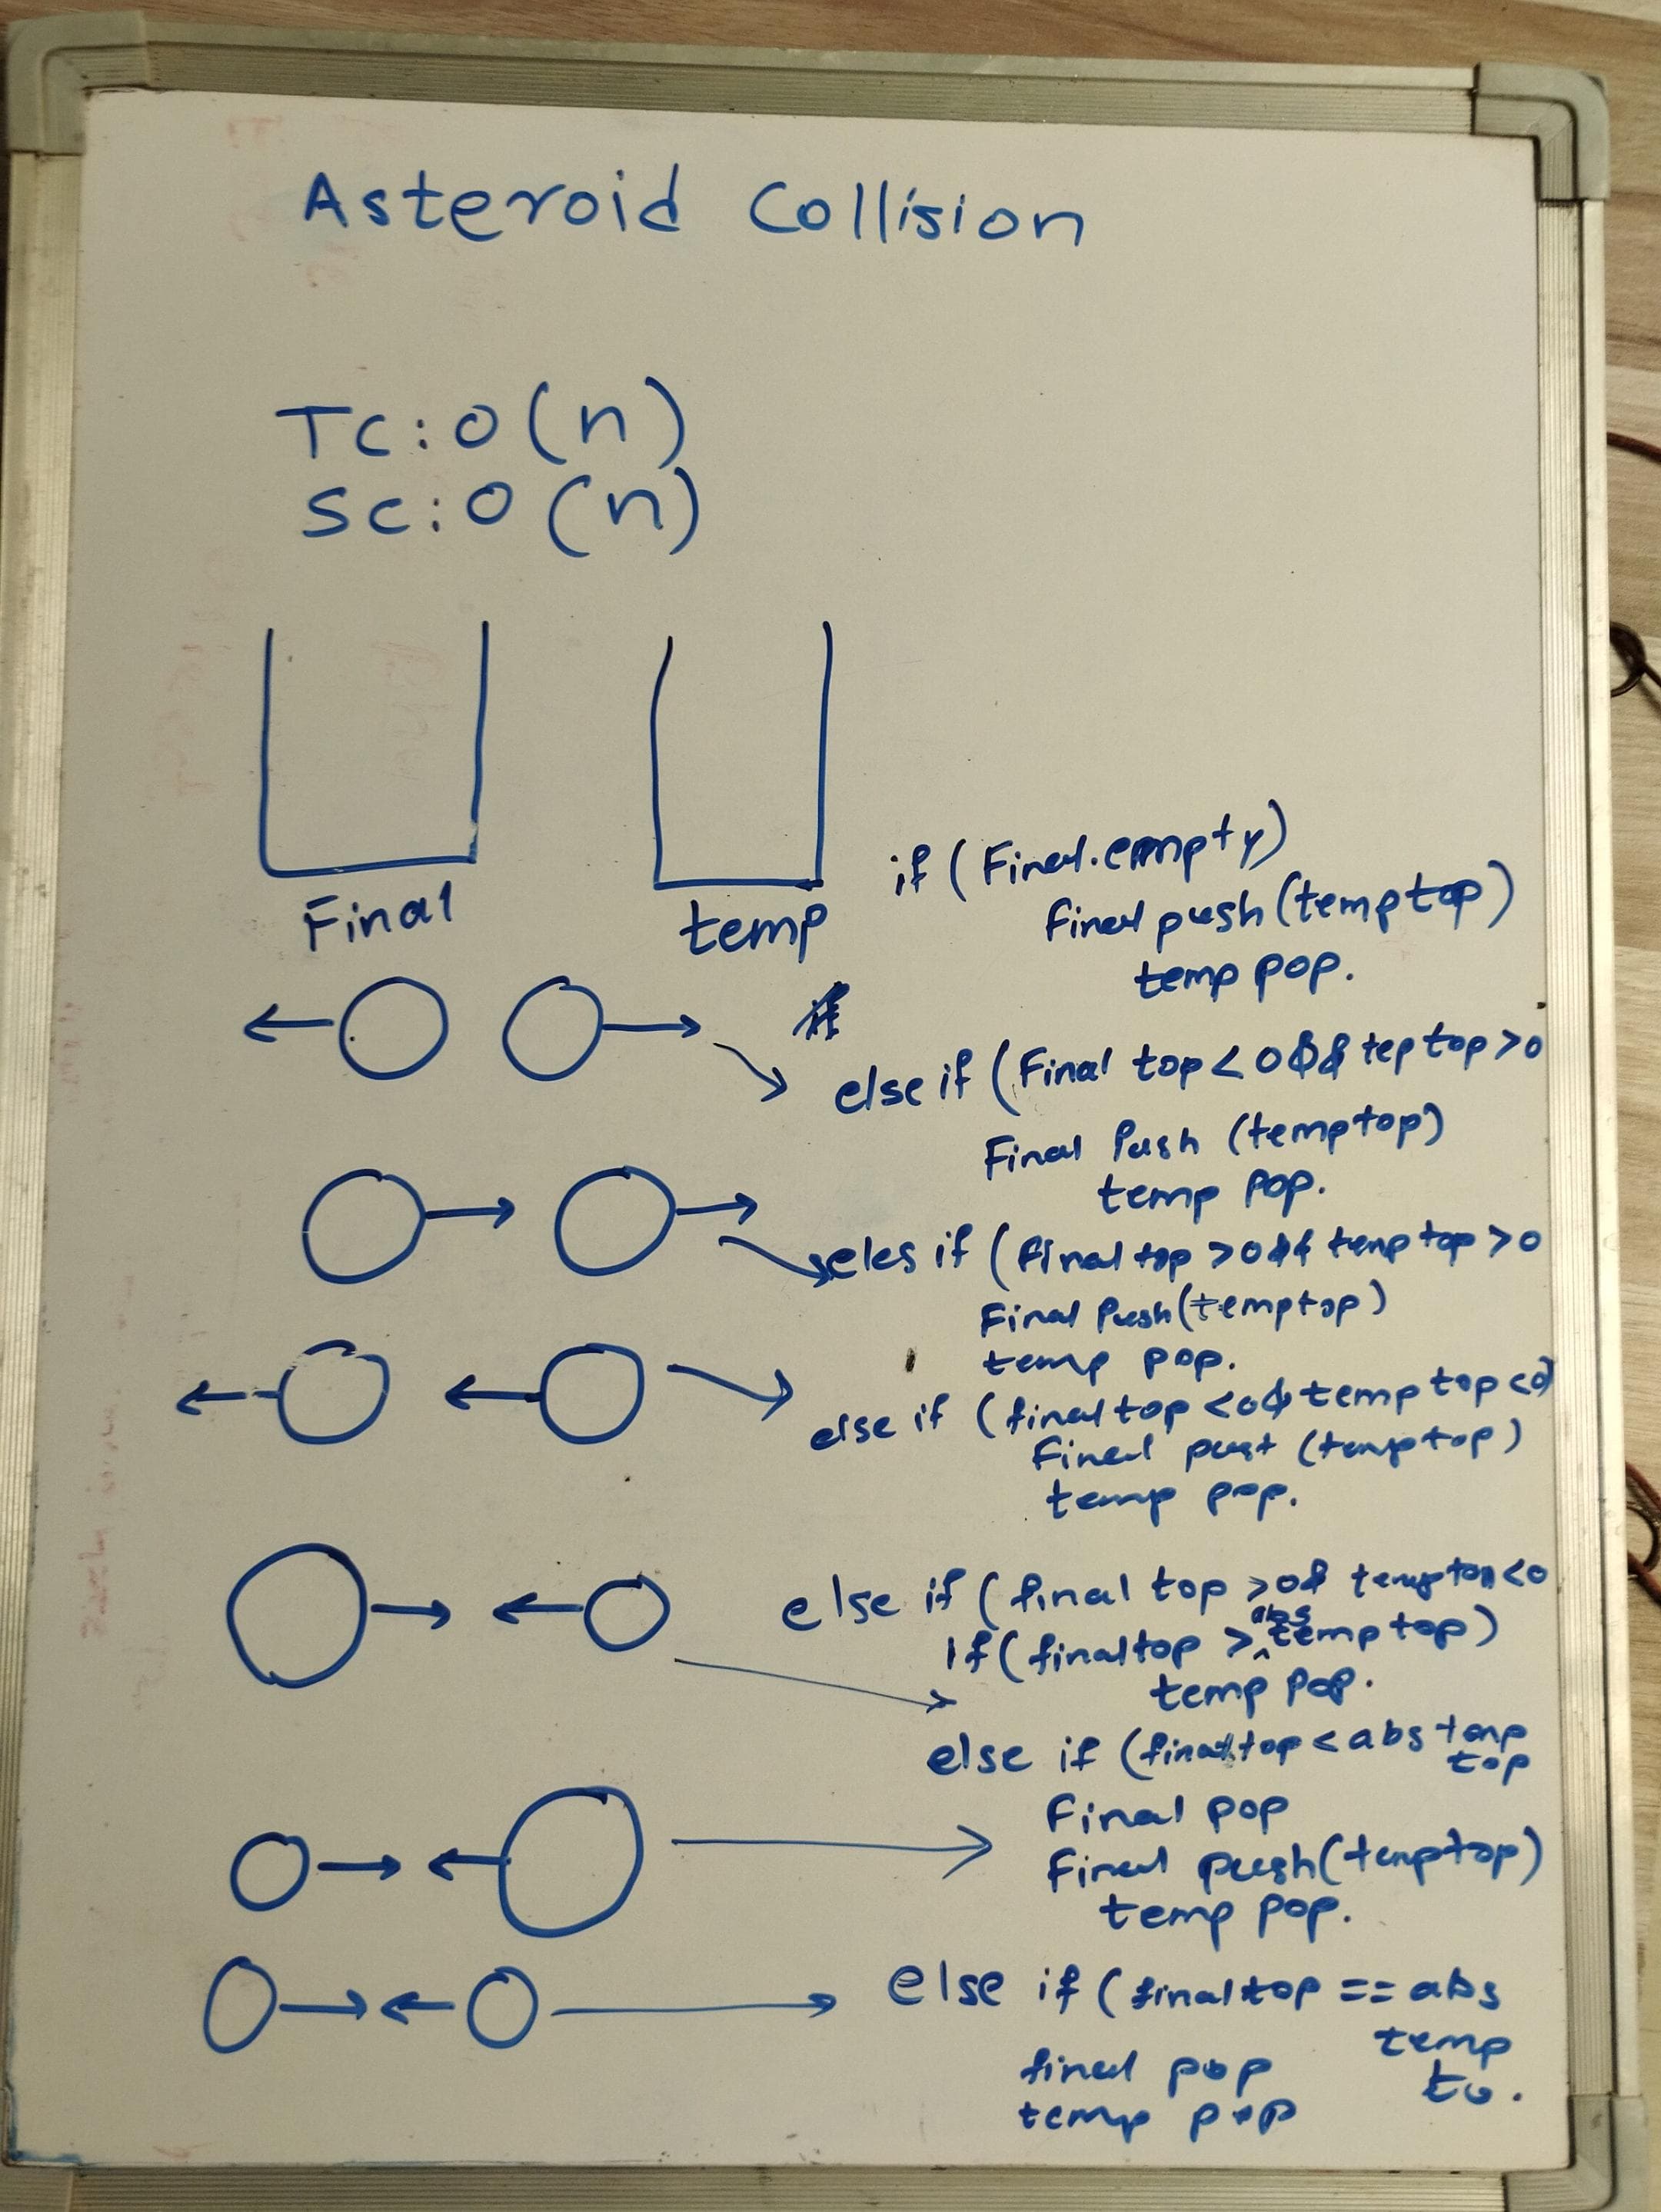 Asteroid Collision
TC: O(n)
SC: O(n)
Final
temp
if (Final.empty)
final push (temp top)
temp pop.
else if (Final top < 0 && tep top > 0
Final Push (temptop)
temp Pop.
eles if (final top > 0 && temp top > 0
Final Push (temptop)
temp pop.
else if (final top < 0 & temp top < 0)
Final pust (temptop)
temp pop.
else if (final top > 0 & temp top < 0
abs
If (finaltop > temp top)
temp Pop.
else if (final top < abs temp
top
Final pop
Final push (temptop)
temp pop.
else if (finaltop == abs
temp
to.
final pop
temp pop